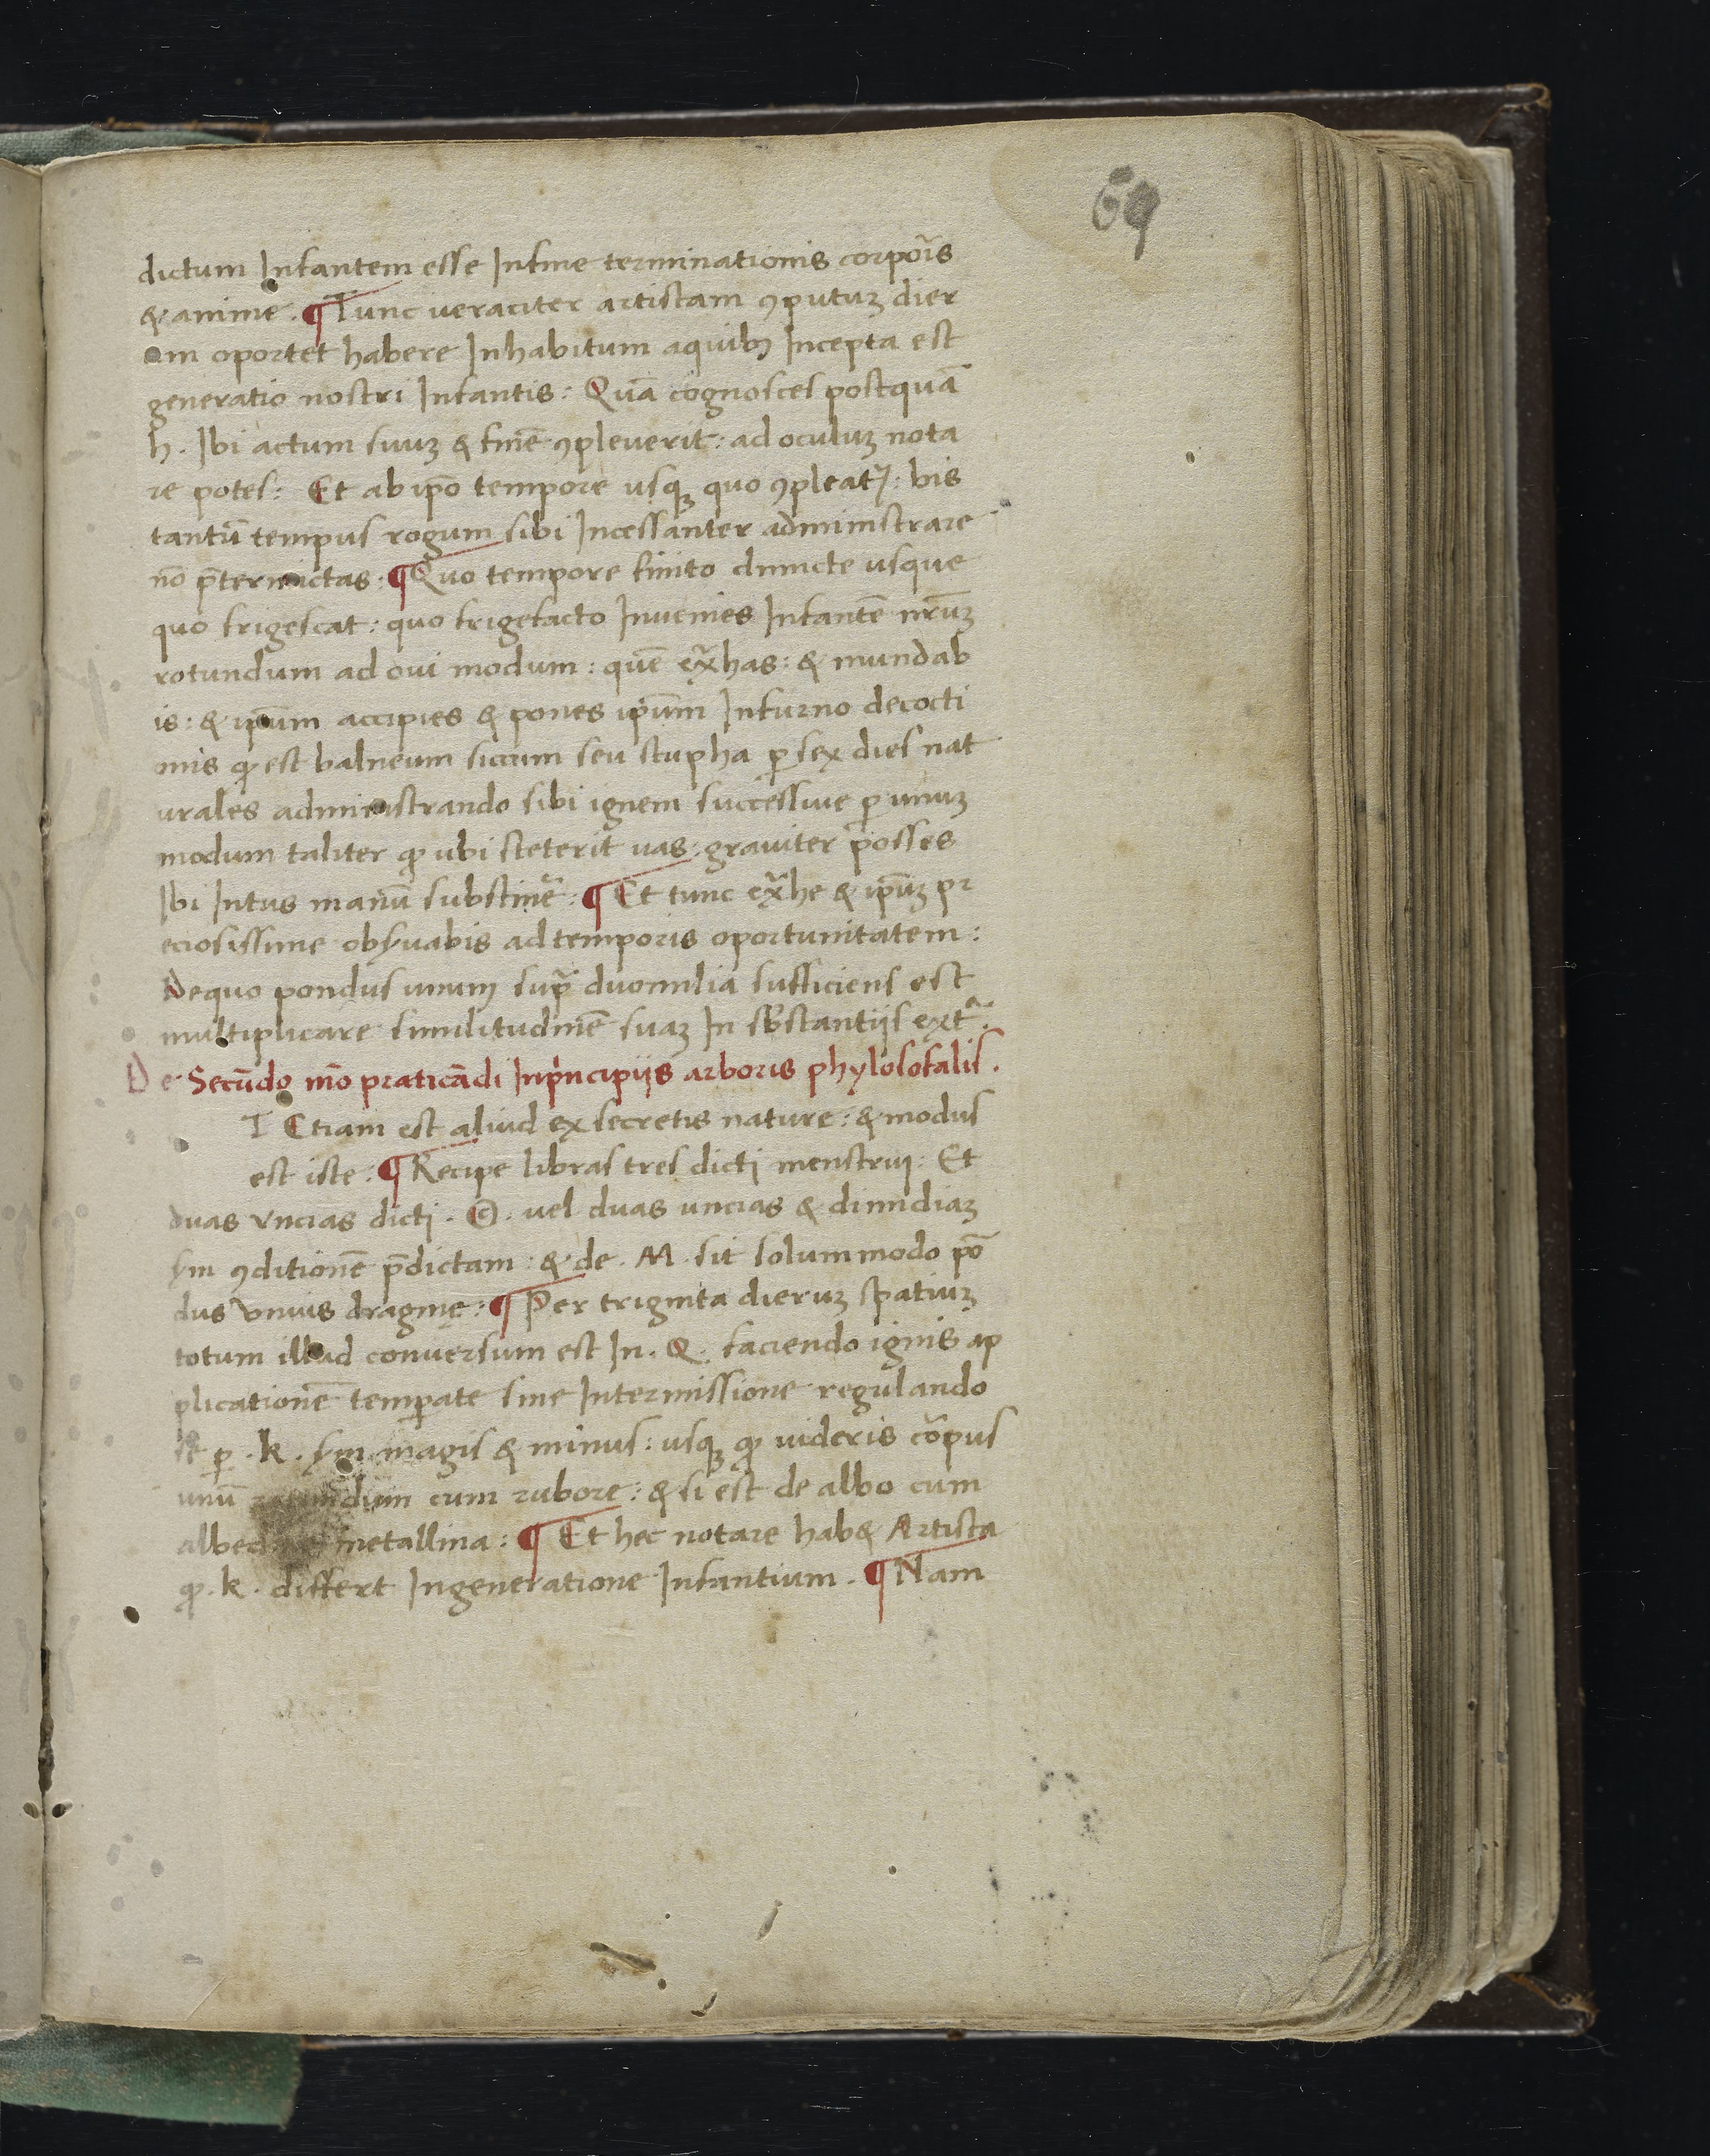 69
dictum Infantem esse Infine terminationis corporis
& anime. ¶Tunc veraciter artistam ꝯputuꝫ dier
um oportet habere Inhabitum aquibꝰ Incepta est
generatio nostri Infantis: Quā cognosces postquā
h. Ibi actum suuꝫ & finē ꝯpleverit: ad oculuꝫ nota
re potes: Et ab ip̄o tempore usqꝫ quo ꝯpleatʳ: bis
tantū tempus rogum sibi Incessanter administrare
nō p̄termictas. ¶Quo tempore finito dimicte usque
quo frigescat: quo frigefacto Invenies Infantē nr̄uꝫ
rotundum ad ovi modum: quē ex̄has: & mundab
is: & ip̄um accipies & pones ip̄um Infurno decocti
onis ꝙ est balneum siccum seu stupha ꝑ sex dies nat
urales administrando sibi ignem successive ꝑ unuꝫ
modum taliter ꝙ ubi steterit vas: graviter posses
Ibi Intus manū substinē: ¶Et tunc ex̄he & ip̄uꝫ pr
eciosissime obsͬvabis ad temporis oportunitatem:
Dequo pondus unum supͣ duomilia sufficiens est
multiplicare similitudinē suaꝫ In sb̄stantijs extͣ.
De Secūdo mō praticādi Inprͥncipijs arboris phylosofalis.
T Etiam est aliud ex secretis nature: & modus
est iste: ¶Recipe libras tres dicti menstrui: Et
duas vncias dicti. ©. vel duas uncias & dimidiaꝫ
sͫm ꝯditionē p̄dictam: & de. M. sit solummodo pō
dus vnius dragme: ¶Per triginta dieruꝫ spatiuꝫ
totum illud conversum est In. Q. faciendo ignis ap
plicationē temꝑate sine Intermissione regulando
se ꝑ. k. sͫm magis & minus: usqꝫ ꝙ videris corpus
unū rotundum cum rubore: & si est de albo cum
metallina: ¶Et hec notare hab& Artista
ꝙ. k. differt Ingeneratione Infantium. ¶Nam